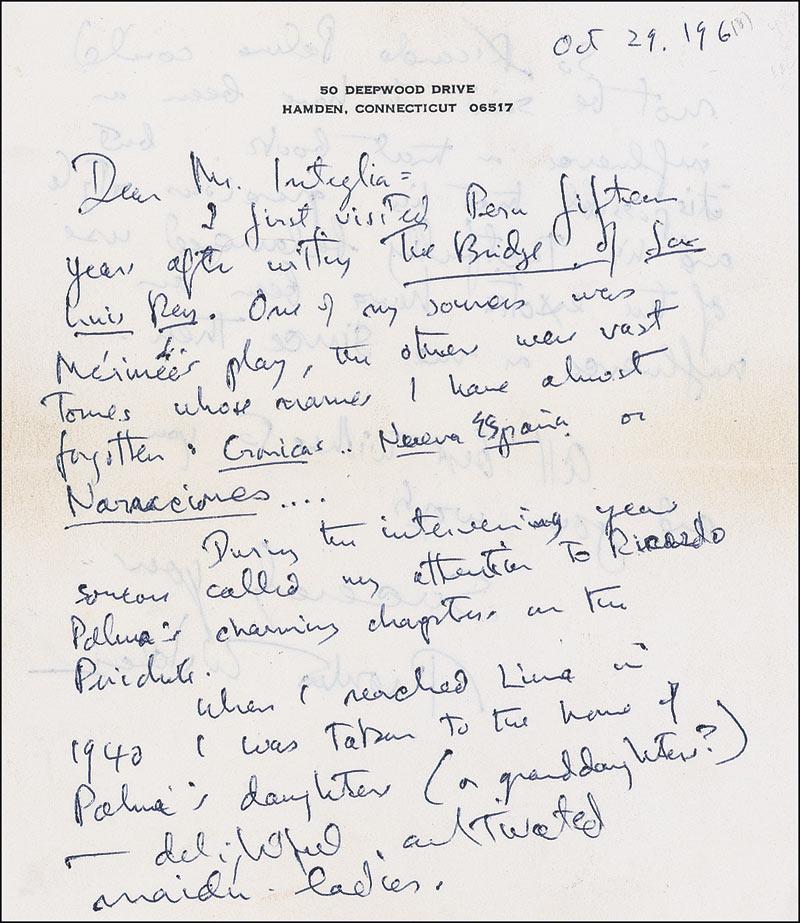 Oct 29. 196
50 DEEPWOOD DRIVE
HAMDEN, CONNECTICUT 06517
Dear Mr. Integlia =
I first visited Peru fifteen
years after writing The Bridge of San
Luis Rey. One of my sources was
Mérimée's play, the others were vast
Tomes whose names I have almost
forgotten : Cronicas .. Nueva España or
Narracciones ....
During the intervening years
someone called my attention to Ricardo
Palma's charming chapters on the
Perichole.
When I reached Lima in
1940 I was taken to the home of
Palma's daughters (or granddaughters?)
— delightful cultivated
maiden ladies.